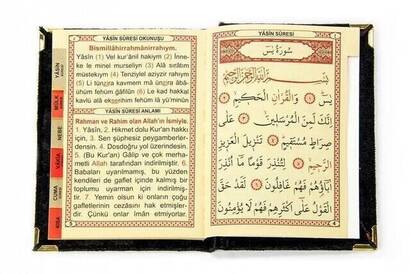 YÂSÎN SÛRESİ OKUNUŞU
Bismillâhirrahmânirrahıym.
Yâsîn (1) Vel kur'ânil hakiym (2) İnne-
ke le minel murseliyn (3) Alâ sırâtım
müstekıym (4) Tenziylel aziyzir rahıym
(5) Li
âbâuhüm fehüm ğâfilûn (6) Le kad hakkal
kavlü alâ ekserihim fehüm lâ yü'minûn
YÂSÎN SÛRESİ ANLAMI
Rahman ve Rahim olan Allah'ın İsmiyle.
1. Yâsîn, 2. Hikmet dolu Kur'an hakkı
için, 3. Sen şüphesiz peygamberler-
densin. 4. Dosdoğru yol üzerindesin.
5. (Bu Kur'an) Gâlip ve çok merha-
metli Allah tarafından indirilmiştir. 6.
Babaları uyarılmamış, bu yüzden
kendileri de gaflet içinde kalmış bir
toplumu uyarman için indirilmiş-
tir. 7. Yemin olsun ki onların çoğu
gafletlerinin cezasını hak etmişler-
dir. Çünkü onlar îmân etmiyorlar.
YÂSÎN
MÜLK
NEBE
VAKIA
CUMA
YÂSÎN SÛRESİ
سُورَةُ يٰسٓ
بِسْمِ اللّٰهِ الرَّحْمٰنِ الرَّحِيمِ
يٰسٓ ﴿١﴾ وَالْقُرْاٰنِ الْحَكِيمِ ﴿٢﴾
اِنَّكَ لَمِنَ الْمُرْسَلِينَ ﴿٣﴾ عَلٰى
صِرَاطٍ مُسْتَقِيمٍ ﴿٤﴾ تَنْزِيلَ الْعَزِيزِ
الرَّحِيمِ ﴿٥﴾ لِتُنْذِرَ قَوْمًا مَٓا اُنْذِرَ
اٰبَٓاؤُ۬هُمْ فَهُمْ غَافِلُونَ ﴿٦﴾ لَقَدْ حَقَّ
الْقَوْلُ عَلٰٓى اَكْثَرِهِمْ فَهُمْ لَا يُؤْمِنُونَ
4